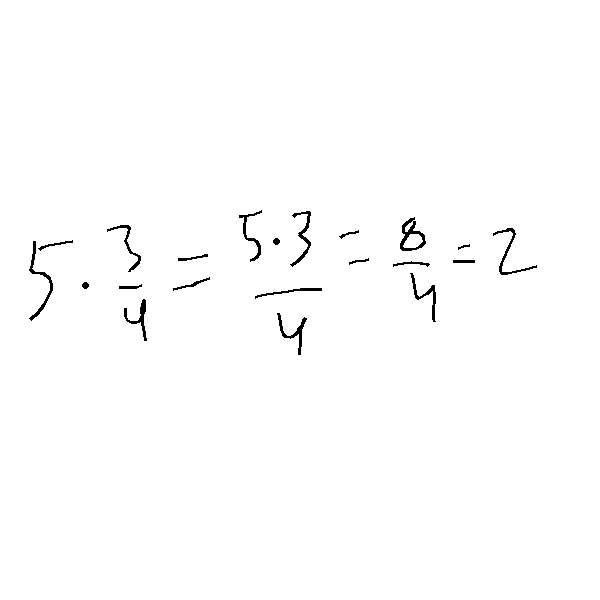 5 · 3/4 = (5 · 3)/4 = 8/4 = 2